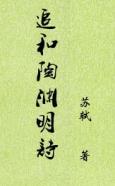 追和陶渊明詩
苏轼 著